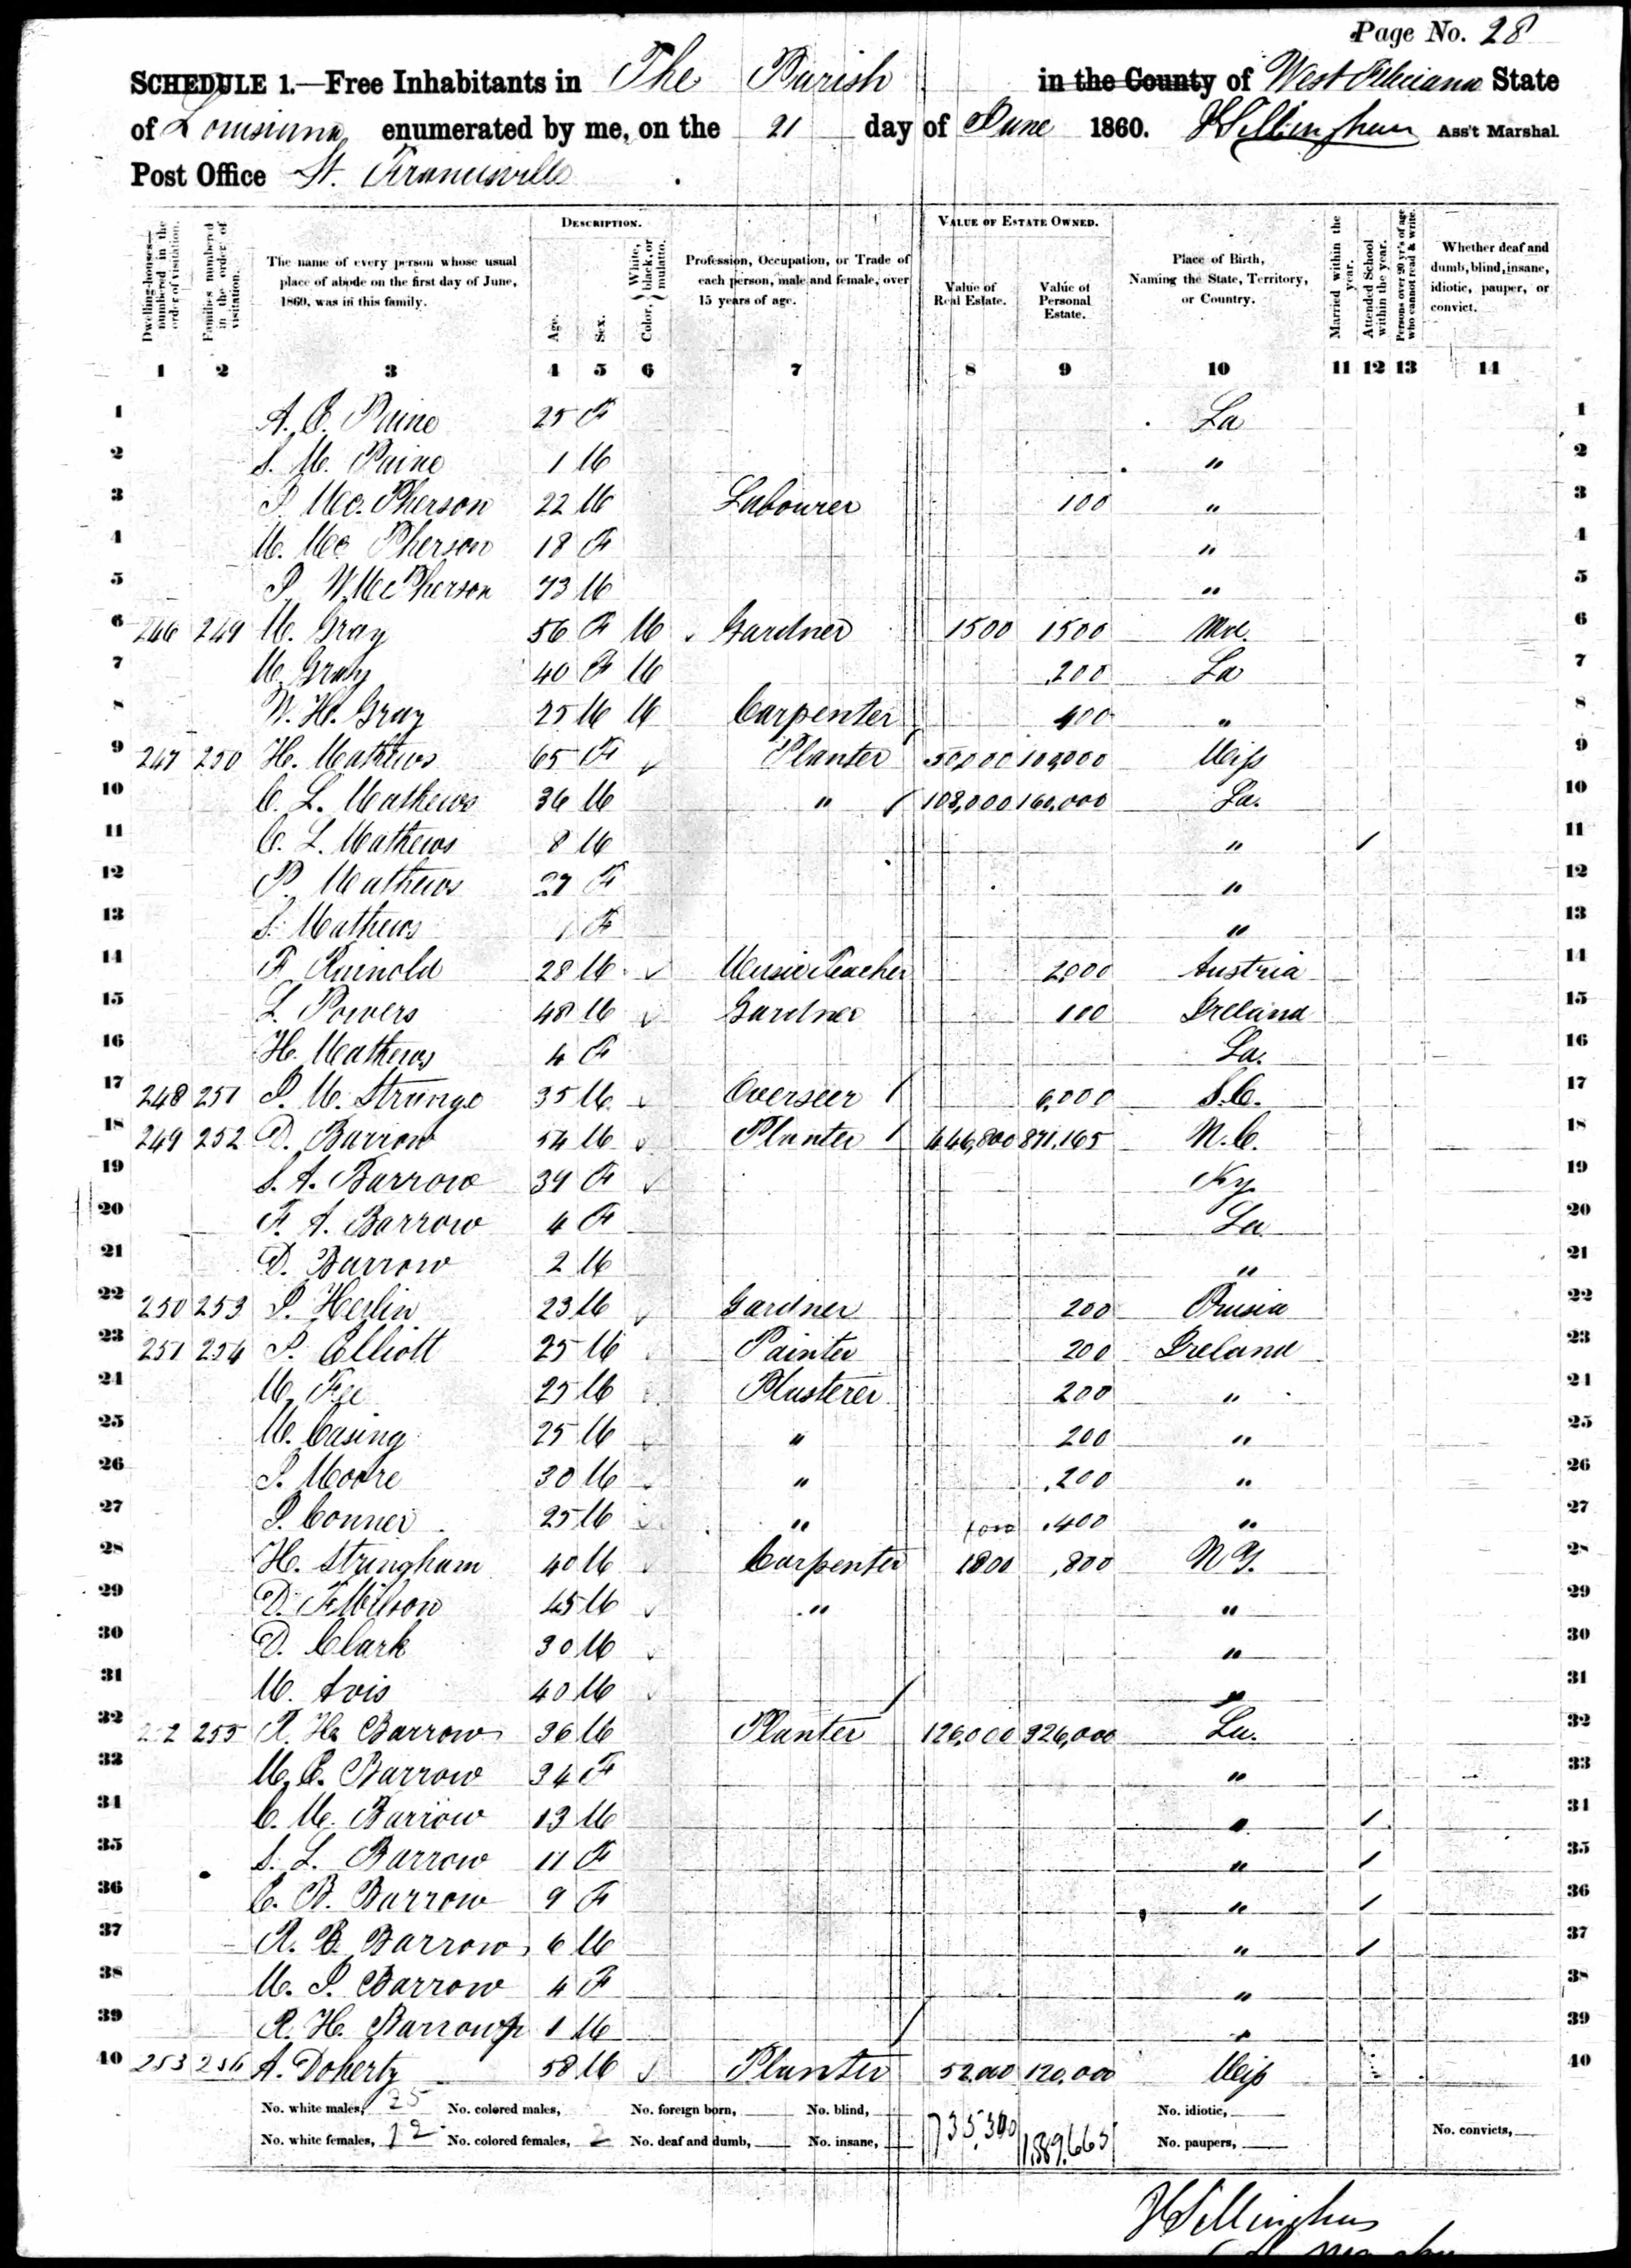 Page No. 28
SCHEDULE 1.—Free Inhabitants in The Parish in the County of West Feliciana State
of Louisiana enumerated by me, on the 21 day of June 1860. Ass't Marshal.
Post Office St. Francisville
DESCRIPTION. VALUE OF ESTATE OWNED.
Dwelling-houses—numbered in the order of visitation.
Families numbered in the order of visitation.
The name of every person whose usual place of abode on the first day of June, 1860, was in this family.
Age.
Sex.
Color, { White, black, or mulatto.
Profession, Occupation, or Trade of each person, male and female, over 15 years of age.
Value of Real Estate.
Value of Personal Estate.
Place of Birth, Naming the State, Territory, or Country.
Married within the year.
Attended School within the year.
Persons over 20 yr's of age who cannot read & write.
Whether deaf and dumb, blind, insane, idiotic, pauper, or convict.
1 2 3 4 5 6 7 8 9 10 11 12 13 14
1 A. E. Paine 25 F La 1
2 S. M. Paine 1 M " 2
3 Mc. Pherson 22 M Labourer 100 " 3
4 M. Mc Pherson 18 F " 4
5 W. McPherson M " 5
6 246 249 M. Gray 56 F M Gardner 1500 1500 Md. 6
7 M. Gray 40 F M 200 La 7
8 W. H. Gray 25 M M Carpenter 400 " 8
9 247 250 H. Mathews 65 F Planter Miss 9
10 C. L. Mathews 36 M " 108,000 160,000 La. 10
11 C. L. Mathews 8 M " / 11
12 P. Mathews 27 F " 12
13 S. Mathews 1 F " 13
14 F. Rainold 28 M Music Teacher 2,000 Austria 14
15 L. Powers 48 M Gardner 100 Ireland 15
16 H. Mathews 4 F La. 16
17 248 251 J. M. Strange 35 M Overseer 6,000 S.C. 17
18 249 252 D. Barrow 54 M Planter 446,800 871,165 N.C. 18
19 S. A. Barrow 39 F Ky. 19
20 F. A. Barrow 4 F La 20
21 D. Barrow 2 M " 21
22 250 253 J. Herlin 23 M Gardner 200 Prusia 22
23 251 254 J. Elliott 25 M Painter 200 Ireland 23
24 M. Fee 25 M Plasterer 200 " 24
25 M. Casing 25 M " 200 " 25
26 J. Moore 30 M " 200 " 26
27 J. Conner 25 M " 400 " 27
28 H. Stringham 40 M Carpenter 1800 800 N.Y. 28
29 D. 45 M " " 29
30 D. Clark 30 M " 30
31 M. Avis 40 M " 31
32 255 R. H. Barrow 36 M Planter 126,000 326,000 La. 32
33 M. E. Barrow 34 F " 33
34 C. M. Barrow 13 M " / 34
35 S. L. Barrow 11 F " / 35
36 B. Barrow 9 F " / 36
37 R. B. Barrow 6 M " / 37
38 M. J. Barrow 4 F " 38
39 R. H. Barrow jr 1 M " 39
40 253 256 A. Doherty 58 M Planter 52,000 120,000 Miss 40
No. white males, 25 No. colored males, No. foreign born, No. blind, 735,300 1,589,665 No. idiotic,
No. white females, 12 No. colored females, 2 No. deaf and dumb, No. insane, No. paupers, No. convicts,